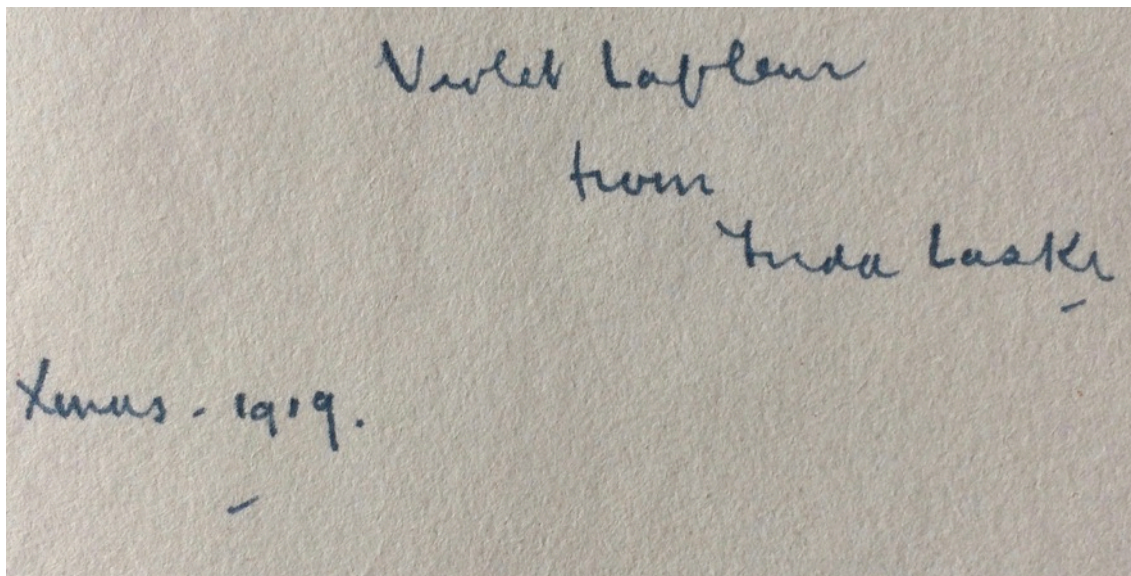 Violet Lafleur
from
Frida Laski
Xmas - 1919.